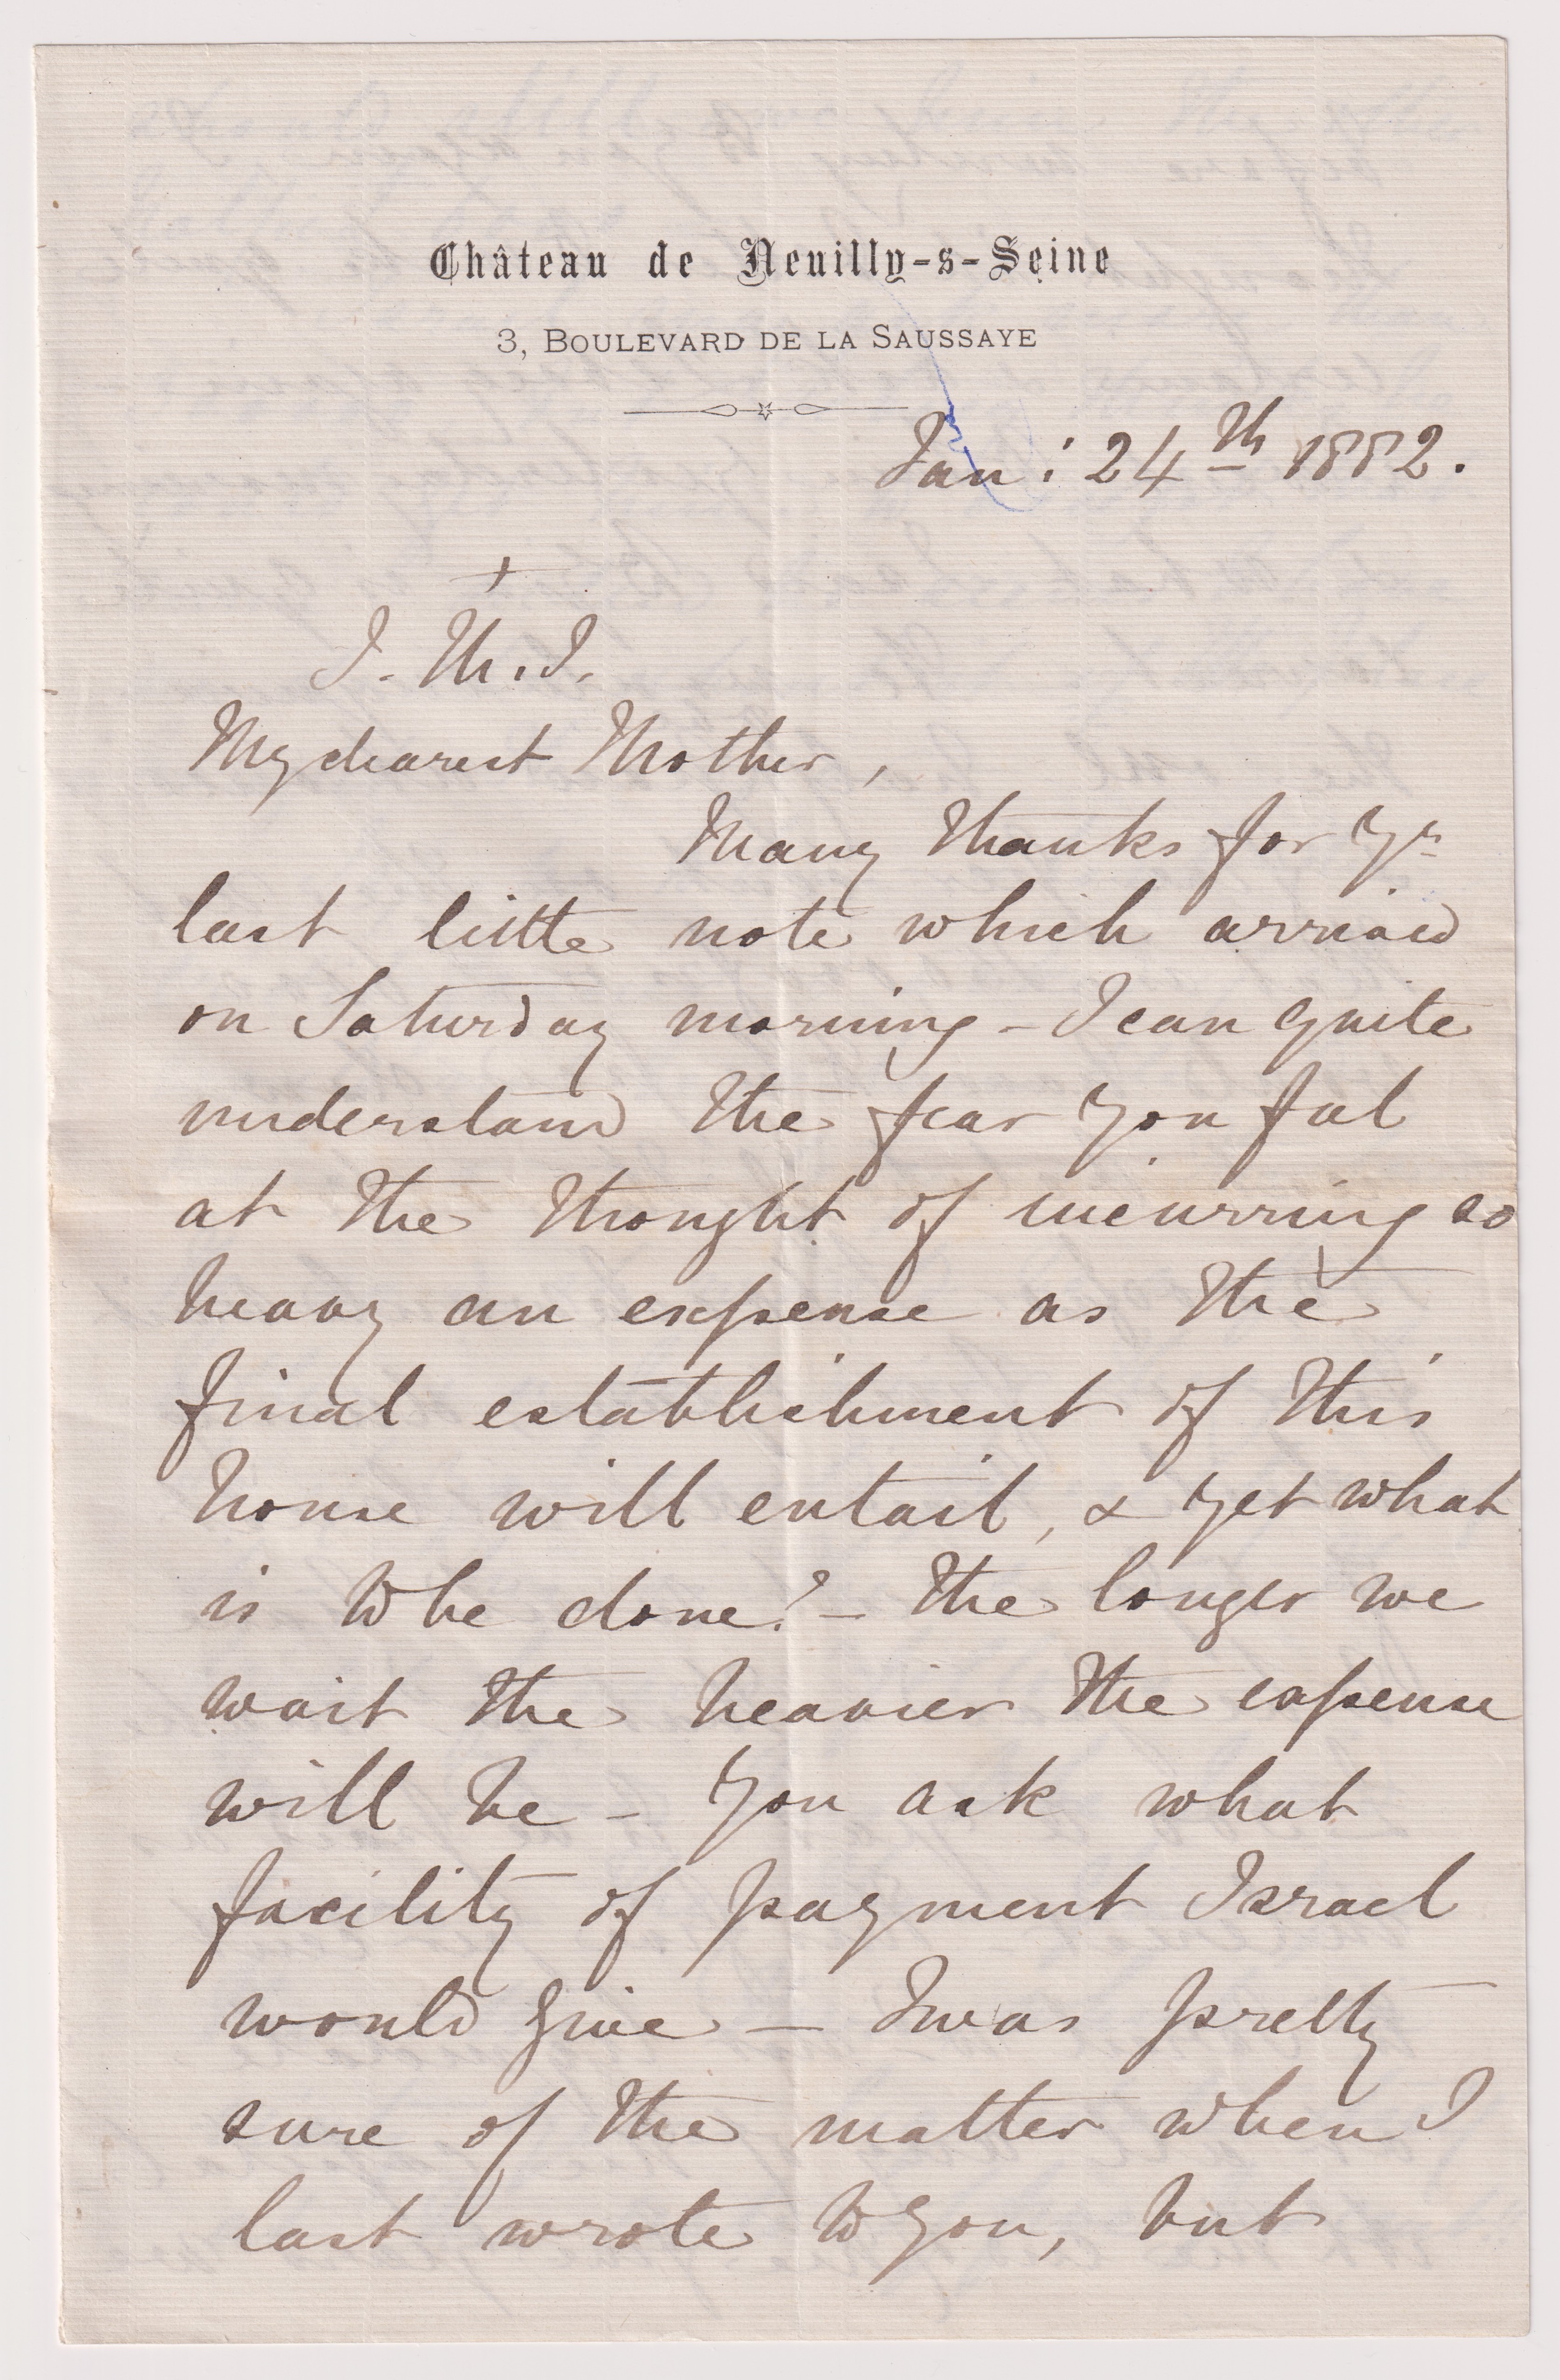 Château de Neuilly-s-Seine
3, BOULEVARD DE LA SAUSSAYE
Jan: 24th 1882.
+
J. M. J.
My dearest Mother,
Many thanks for yr
last little note which arrived
on Saturday morning - I can quite
understand the fear you feel
at the thought of incurring so
heavy an expense as the
final establishment of this
house will entail, & yet what
is to be done? - The longer we
wait the heavier the expense
will be - You ask what
facility of payment Israel
would give - I was pretty
sure of the matter when I
last wrote to you, but